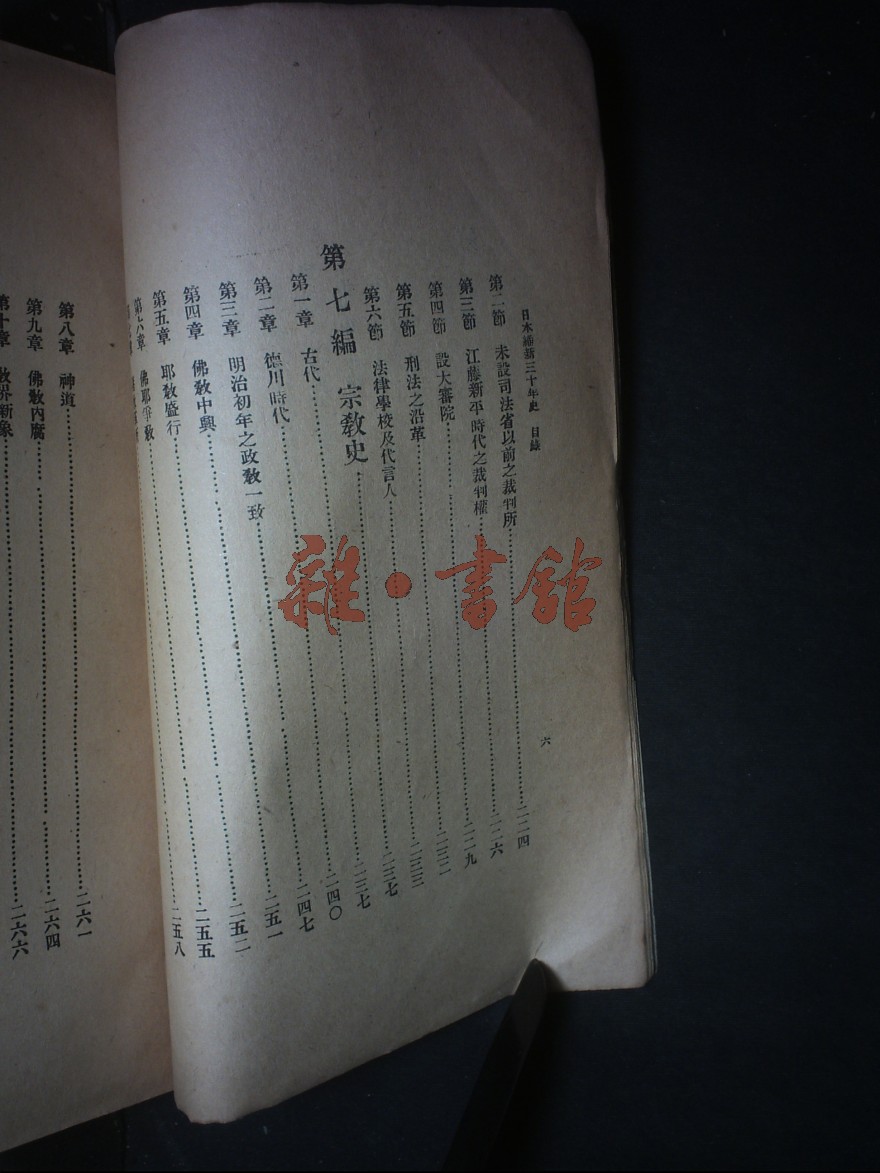 日本維新三十年史 目錄 六
第二節 未設司法省以前之裁判所……二二四
第三節 江藤新平時代之裁判權……二二六
第四節 設大審院……二二九
第五節 刑法之沿革……二三二
第六節 法律學校及代言人……二三三
第七編 宗教史……二三七
第一章 古代……二三七
第二章 德川時代……二四〇
第三章 明治初年之政教一致……二四七
第四章 佛教中興……二五一
第五章 耶教盛行……二五二
第六章 佛耶爭教……二五五
二五八
第八章 神道……二六一
第九章 佛教內腐……二六四
第十章 教界新象……二六六
雜·書館